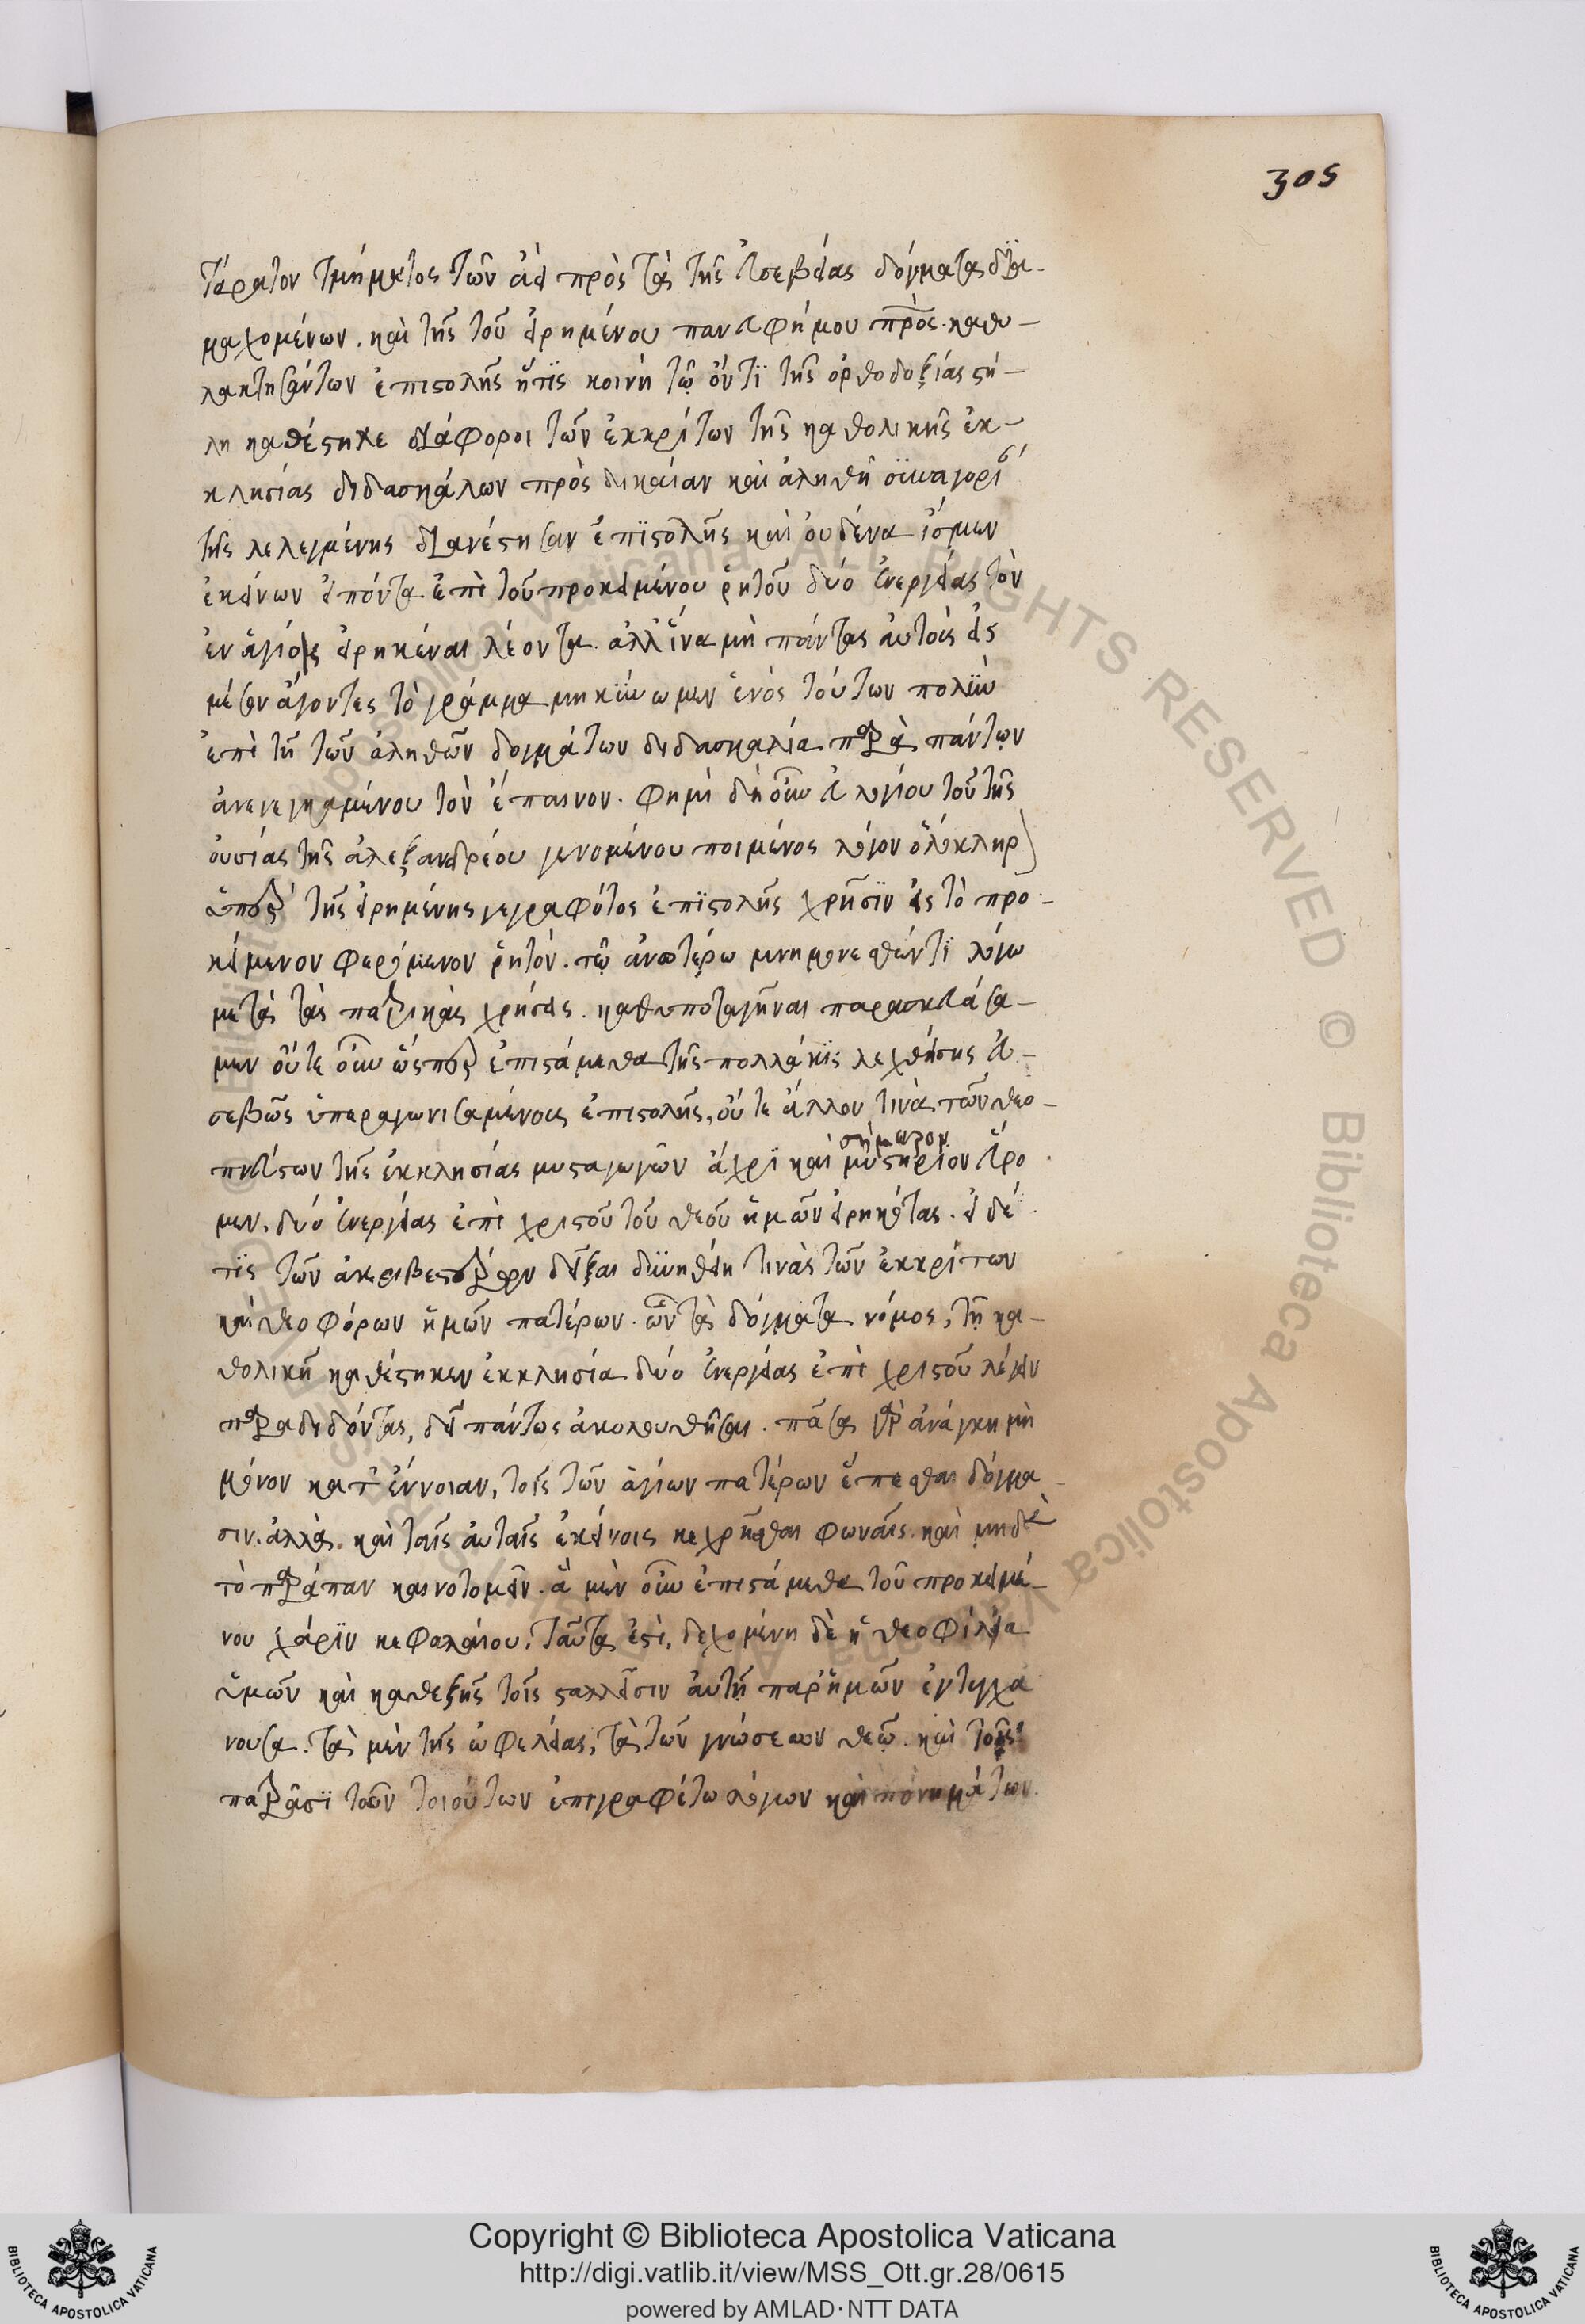 305
τάρατον τμήματος τῶν ἀεὶ πρὸς τὰ τῆς εὐσεβείας δόγματα δϊα-
μαχομένων. καὶ τῆς τοῦ εἰρημένου πανευφήμου πρς. καθυ-
λακτησάντων ἐπιστολῆς ἥτις κοινὴ τῷ ὄντϊ τῆς ὀρθοδοξίας στή-
λη καθέστηκε διάφοροι τῶν ἐκκρίτων τῆς καθολικῆς ἐκ-
κλησίας διδασκάλων πρὸς δικαίαν καὶ ἀληθῆ σϋνηγορί
τῆς λελεγμένης διανέστησαν ἐπϊστολῆς καὶ ουδένα ἴσμεν
ἐκείνων εἰπόντα ἐπὶ τοῦ προκειμένου ῥητοῦ δύο ἐνεργείας τὸν
ἐν ἁγίοις εἰρηκέναι λέοντα. ἀλλ' ἵνα μὴ πάντας αὐτοὺς εἰς
μέσον ἄγοντες τὸ γράμμα μηκϋνωμεν ἑνὸς τούτων πολϋν
ἐπὶ τῆ τῶν ἀληθῶν δογμάτων διδασκαλία παρὰ πάντων
ἀνενεγκαμένου τὸν ἔπαινον. φημὶ δὴ οὖν εὐλογίου τοῦ τῆς
ουσίας τῆς ἀλεξανδρέου γενομένου ποιμένος λόγον ὁλόκληρ
ὑπὲρ τῆς εἰρημένης γεγραφότος ἐπϊστολῆς χρῆσϊν εἰς τὸ προ-
κείμενον φερόμενον ῥητόν. τῷ ἀνωτέρω μνημονευθέντϊ λόγω
μετὰ τὰς πατρικὰς χρήσεις. καθυποταγῆναι παρασκευάσα-
μεν οὔτε οὖν ὥσπερ ἐπιστάμεθα τῆς πολλάκϊς λεχθείσης εὐ-
σεβῶς ὑπεραγωνισαμένους ἐπιστολῆς, οὔτε ἄλλον τινὰ τῶν θεο-
πνεύστων τῆς ἐκκλησίας μυσταγωγῶν ἄχρϊ καὶ μυστήριον εὕρο
σήμερον
μεν. δύο ἐνεργείας ἐπὶ χριστοῦ τοῦ θεοῦ ἡμῶν εἰρηκότας. εἰ δέ
τϊς τῶν ἀκριβεστέρων δεῖξαι δϋνηθείη τινὰς τῶν ἐκκρίτων
καὶ θεοφόρων ἡμῶν πατέρων. ὧν τὰ δόγματα νόμος, τῆ κα-
θολικῆ καθέστηκεν ἐκκλησία δύο ἐνεργείας ἐπὶ χριστοῦ λέγειν
παραδιδόντας, δεῖ πάντως ἀκολουθῆσαι. πᾶσα γὰρ ἀνάγκη μὴ
μόνον κατ' ἔννοιαν, τοῖς τῶν ἁγίων πατέρων ἕπεσθαι δόγμα-
σιν. ἀλλὰ. καὶ ταῖς αὐταῖς ἐκείνοις κεχρῆσθαι φωναῖς. καὶ μηδὲ
τὸ παράπαν καινοτομεῖν. ἃ μὲν οὖν ἐπιστάμεθα τοῦ προκειμέ-
νου χάρϊν κεφαλαίου. ταῦτα ἐστὶ, δεχομένη δὲ ἡ θεοφίλεια
ὑμῶν καὶ καθεξῆς τοῖς σταλλεῖσιν αὐτῆ παρ' ἡμῶν ἐντυγχά
νουσα. τὰ μὲν τῆς ὠφελείας, τὰ τῶν γνώσεων θεῷ. καὶ τοῖς
πατράσϊ τοῦν τοιούτων ἐπιγραφέτω λόγων καὶ πονημάτων.
Copyright © Biblioteca Apostolica Vaticana
http://digi.vatlib.it/view/MSS_Ott.gr.28/0615
powered by AMLAD·NTT DATA